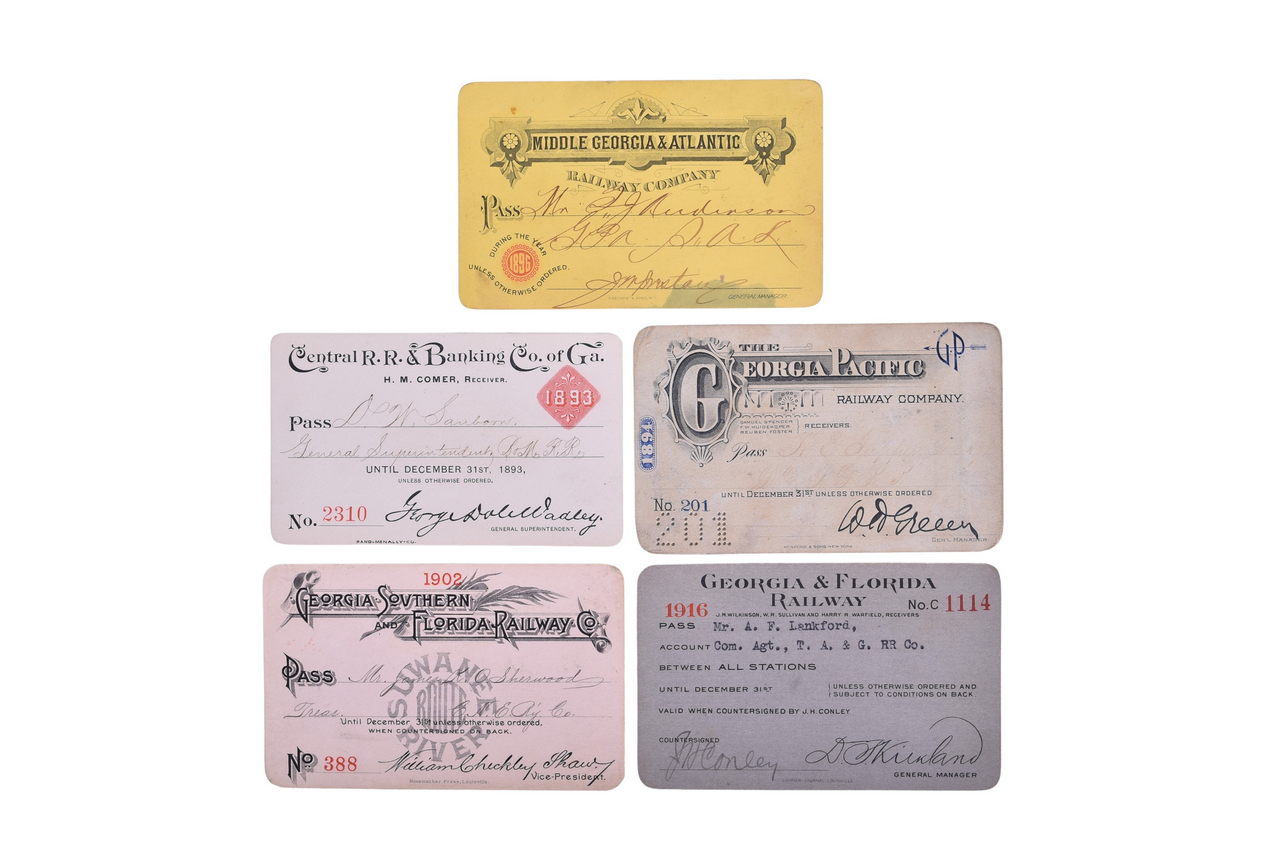 MIDDLE GEORGIA & ATLANTIC
RAILWAY COMPANY
PASS Mr.
DURING THE YEAR
1896
UNLESS OTHERWISE ORDERED.
GENERAL MANAGER
Central R.R. & Banking Co. of Ga.
H. M. COMER, RECEIVER.
1893
Pass D. W. Sanborn.
General Superintendent,
UNTIL DECEMBER 31ST, 1893,
UNLESS OTHERWISE ORDERED.
No. 2310 George Dole Wadley.
GENERAL SUPERINTENDENT.
RAND-MCNALLY-CO.
THE
GEORGIA PACIFIC
GP
RAILWAY COMPANY.
SAMUEL SPENCER
F.W. HUIDEKOPER
REUBEN FOSTER
RECEIVERS.
1894
Pass
UNTIL DECEMBER 31ST UNLESS OTHERWISE ORDERED
No. 201
201
W. H. Green
GEN'L MANAGER
1902
GEORGIA SOVTHERN
AND FLORIDA RAILWAY CO.
PASS Mr. James K. O. Sherwood
Treas. Ry. Co.
SUWANEE
ROUTE
RIVER
Until December 31st unless otherwise ordered,
WHEN COUNTERSIGNED ON BACK.
No 388 William Checkley Shaw
Vice-President.
GEORGIA & FLORIDA
RAILWAY
No. C 1114
1916
J.M. WILKINSON, W.R. SULLIVAN AND HARRY R. WARFIELD, RECEIVERS
PASS Mr. A. F. Lankford,
ACCOUNT Com. Agt., T. A. & G. RR Co.
BETWEEN ALL STATIONS
UNTIL DECEMBER 31ST
UNLESS OTHERWISE ORDERED AND
SUBJECT TO CONDITIONS ON BACK.
VALID WHEN COUNTERSIGNED BY J.H. CONLEY
COUNTERSIGNED
J H Conley
GENERAL MANAGER